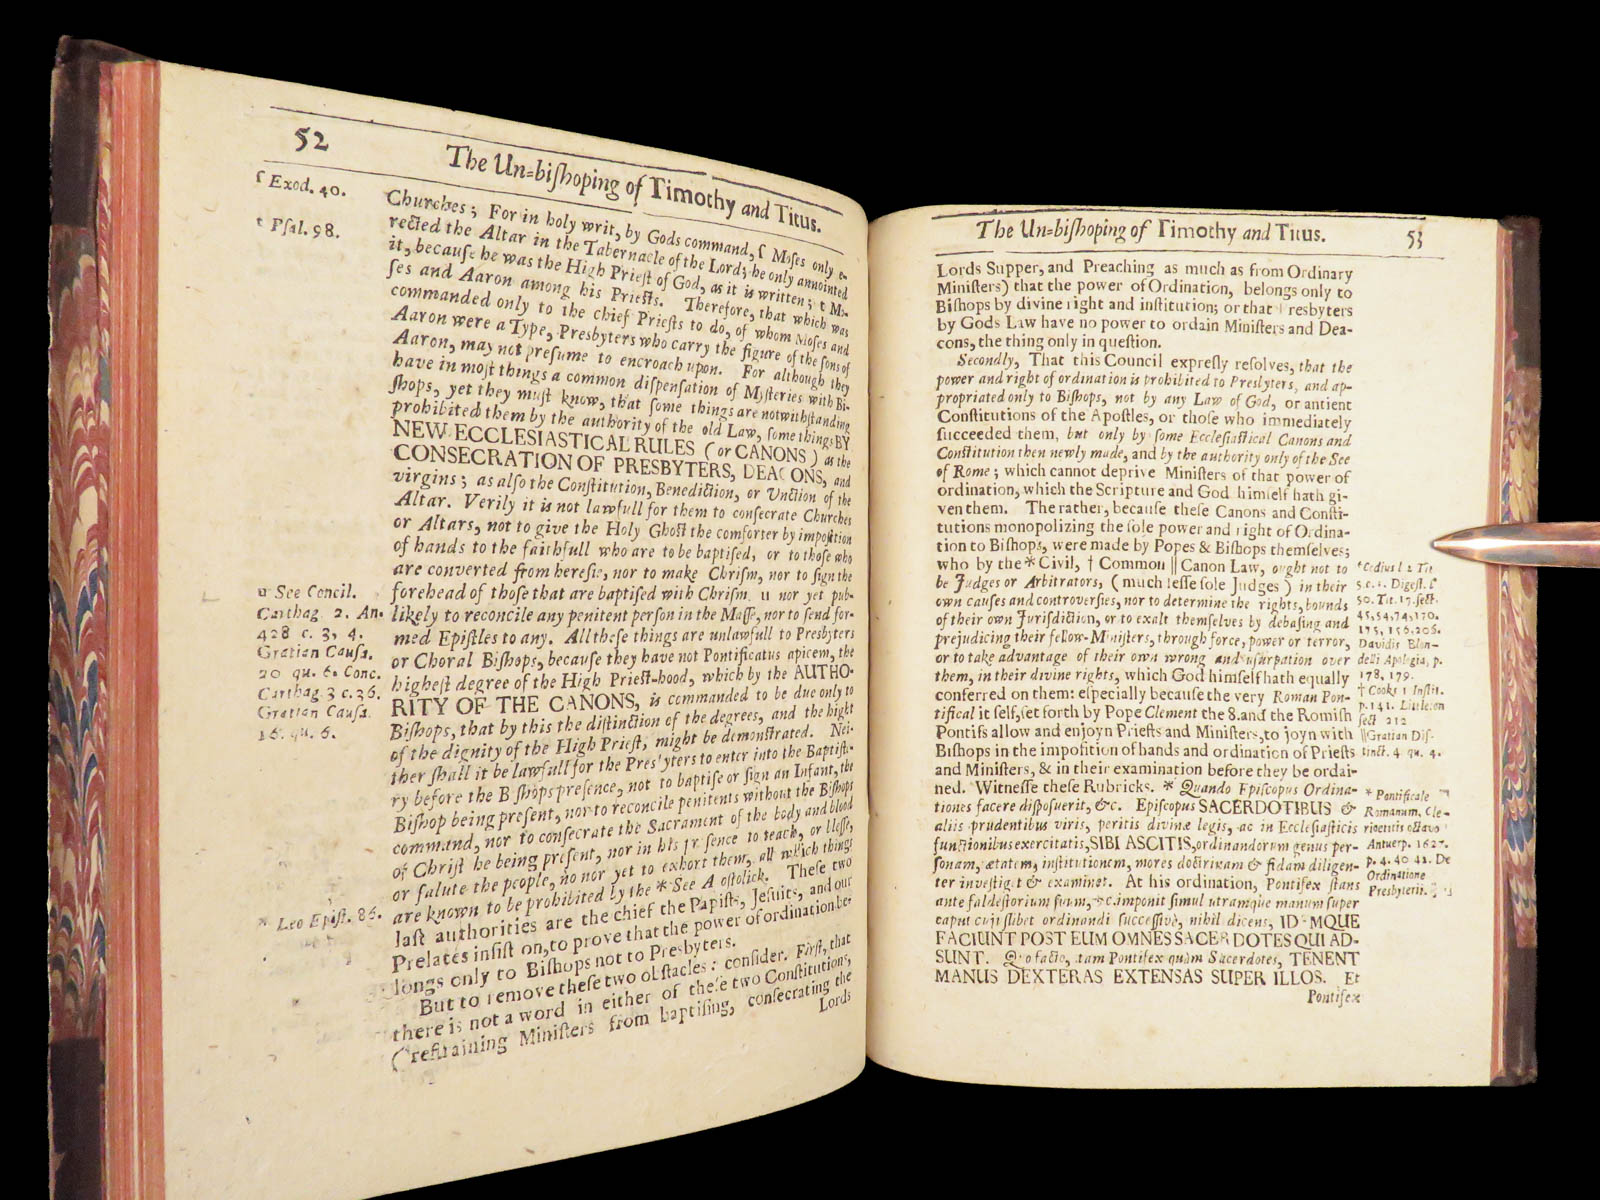 52
The Un=biſhoping of Timothy and Titus.
ſ Exod. 40.
t Pſal. 98.
Churches; For in holy writ, by Gods command, ſ Moſes only e-
rected the Altar in the Tabernacle of the Lord; he only annointed
it, becauſe he was the High Prieſt of God, as it is written; t Mo-
ſes and Aaron among his Prieſts. Therefore, that which was
commanded only to the chief Prieſts to do, of whom Moſes and
Aaron were a Type, Presbyters who carry the figure of the ſons of
Aaron, may not preſume to encroach upon. For although they
have in moſt things a common diſpenſation of Myſteries with Bi-
ſhops, yet they muſt know, that ſome things are notwithſtanding
prohibited them by the authority of the old Law, ſome things BY
NEW ECCLESIASTICAL RULES (or CANONS) as the
CONSECRATION OF PRESBYTERS, DEACONS, and
virgins; as alſo the Conſtitution, Benediction, or Unction of the
Altar. Verily it is not lawfull for them to conſecrate Churches
or Altars, not to give the Holy Ghoſt the comforter by impoſition
of hands to the faithfull who are to be baptiſed, or to thoſe who
are converted from hereſie, nor to make Chriſm, nor to ſign the
forehead of thoſe that are baptiſed with Chriſm. u nor yet pub-
likely to reconcile any penitent perſon in the Maſſe, nor to ſend for-
med Epiſtles to any. All theſe things are unlawfull to Presbyters
or Choral Biſhops, becauſe they have not Pontificatus apicem, the
higheſt degree of the High Prieſt-hood, which by the AUTHO-
RITY OF THE CANONS, is commanded to be due only to
Biſhops, that by this the diſtinction of the degrees, and the hight
of the dignity of the High Prieſt, might be demonſtrated. Nei-
ther ſhall it be lawfull for the Presbyters to enter into the Baptiſt-
ry before the Biſhops preſence, not to baptiſe or ſign an Infant, the
Biſhop being preſent, nor to reconcile penitents without the Biſhops
command, nor to conſecrate the Sacrament of the body and blood
of Chriſt he being preſent, nor in his preſence to teach, or bleſſe,
or ſalute the people, no nor yet to exhort them, all which things
are known to be prohibited by the * See Apoſtolick. Theſe two
laſt authorities are the chief the Papiſts, Jeſuits, and our
Prelates inſiſt on, to prove that the power of ordination be-
longs only to Biſhops not to Presbyters.
But to remove theſe two obſtacles: conſider. Firſt, that
there is not a word in either of theſe two Conſtitutions,
(reſtraining Miniſters from baptiſing, conſecrating the
Lords
u See Concil.
Carthag. 2. An.
428 c. 3, 4.
Gratian Cauſa.
20 qu. 6. Conc.
Carthag 3 c. 36.
Gratian Cauſa.
16. qu. 6.
* Leo Epiſt. 86.
The Un=biſhoping of Timothy and Titus.
53
Lords Supper, and Preaching as much as from Ordinary
Miniſters) that the power of Ordination, belongs only to
Biſhops by divine right and inſtitution; or that Presbyters
by Gods Law have no power to ordain Miniſters and Dea-
cons, the thing only in queſtion.
Secondly, That this Council expreſly reſolves, that the
power and right of ordination is prohibited to Presbyters, and ap-
propriated only to Biſhops, not by any Law of God, or antient
Conſtitutions of the Apoſtles, or thoſe who immediately
ſucceeded them, but only by ſome Eccleſiaſtical Canons and
Conſtitution then newly made, and by the authority only of the See
of Rome; which cannot deprive Miniſters of that power of
ordination, which the Scripture and God himſelf hath gi-
ven them. The rather, becauſe theſe Canons and Conſti-
tutions monopolizing the ſole power and right of Ordina-
tion to Biſhops, were made by Popes & Biſhops themſelves;
who by the * Civil, † Common || Canon Law, ought not to
be Judges or Arbitrators, (much leſſe ſole Judges) in their
own cauſes and controverſies, nor to determine the rights, bounds
of their own Juriſdiction, or to exalt themſelves by debaſing and
prejudicing their fellow-Miniſters, through force, power or terror,
or to take advantage of their own wrong and uſurpation over
them, in their divine rights, which God himſelf hath equally
conferred on them: eſpecially becauſe the very Roman Pon-
tifical it ſelf, ſet forth by Pope Clement the 8. and the Romiſh
Pontifs allow and enjoyn Prieſts and Miniſters, to joyn with
Biſhops in the impoſition of hands and ordination of Prieſts
and Miniſters, & in their examination before they be ordai-
ned. Witneſſe theſe Rubricks. * Quando Epiſcopus Ordina-
tiones facere diſpoſuerit, &c. Epiſcopus SACERDOTIBUS &
aliis prudentibus viris, peritis divinæ legis, ac in Eccleſiaſticis
functionibus exercitatis, SIBI ASCITIS, ordinandorum genus per-
ſonam, ætatem, inſtitutionem, mores doctrinam & fidam diligen-
ter inveſtiget & examinet. At his ordination, Pontifex ſtans
ante faldeſtorium ſuum, &c. imponit ſimul utramque manum ſuper
caput cujuſlibet ordinandi ſucceſſivè, nihil dicens, IDEMQUE
FACIUNT POST EUM OMNES SACERDOTES QUI AD-
SUNT. Quo facto, tam Pontifex quàm Sacerdotes, TENENT
MANUS DEXTERAS EXTENSAS SUPER ILLOS. Et
Pontifex
* Codius l. 2 Tit
5. c. 1. Digeſt. l.
50. Tit. 17. ſect.
45, 54, 74, 170.
175, 156, 206.
Davidis Blon-
delli Apologia, p.
178, 179.
† Cooks 1 Inſtit.
p. 141. Littleton
ſect 212
|| Gratian Diſ-
tinct. 4 qu. 4.
* Pontificale
Romanum, Cle-
mentis octavo
Antwerp. 1627.
p. 4. 40 41. De
Ordinatione
Presbyterii.